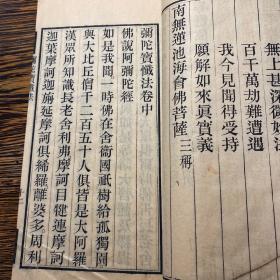 無上甚深微妙法
百千萬劫難遭遇
我今見聞得受持
願解如來真實義
南無蓮池海會佛菩薩三稱
彌陀寶懺法卷中
佛說阿彌陀經
如是我聞一時佛在舍衛國祇樹給孤獨園
與大比丘僧千二百五十人俱皆是大阿羅
漢眾所知識長老舍利弗摩訶目犍連摩訶
迦葉摩訶迦旃延摩訶俱絺羅離婆多周利